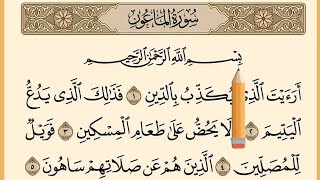 سُورَةُ المَاعُونِ
بِسْمِ ٱللَّهِ ٱلرَّحْمَٰنِ ٱلرَّحِيمِ
أَرَءَيْتَ ٱلَّذِى يُكَذِّبُ بِٱلدِّينِ ١ فَذَٰلِكَ ٱلَّذِى يَدُعُّ
ٱلْيَتِيمَ ٢ وَلَا يَحُضُّ عَلَىٰ طَعَامِ ٱلْمِسْكِينِ ٣ فَوَيْلٌ
لِّلْمُصَلِّينَ ٤ ٱلَّذِينَ هُمْ عَن صَلَاتِهِمْ سَاهُونَ ٥